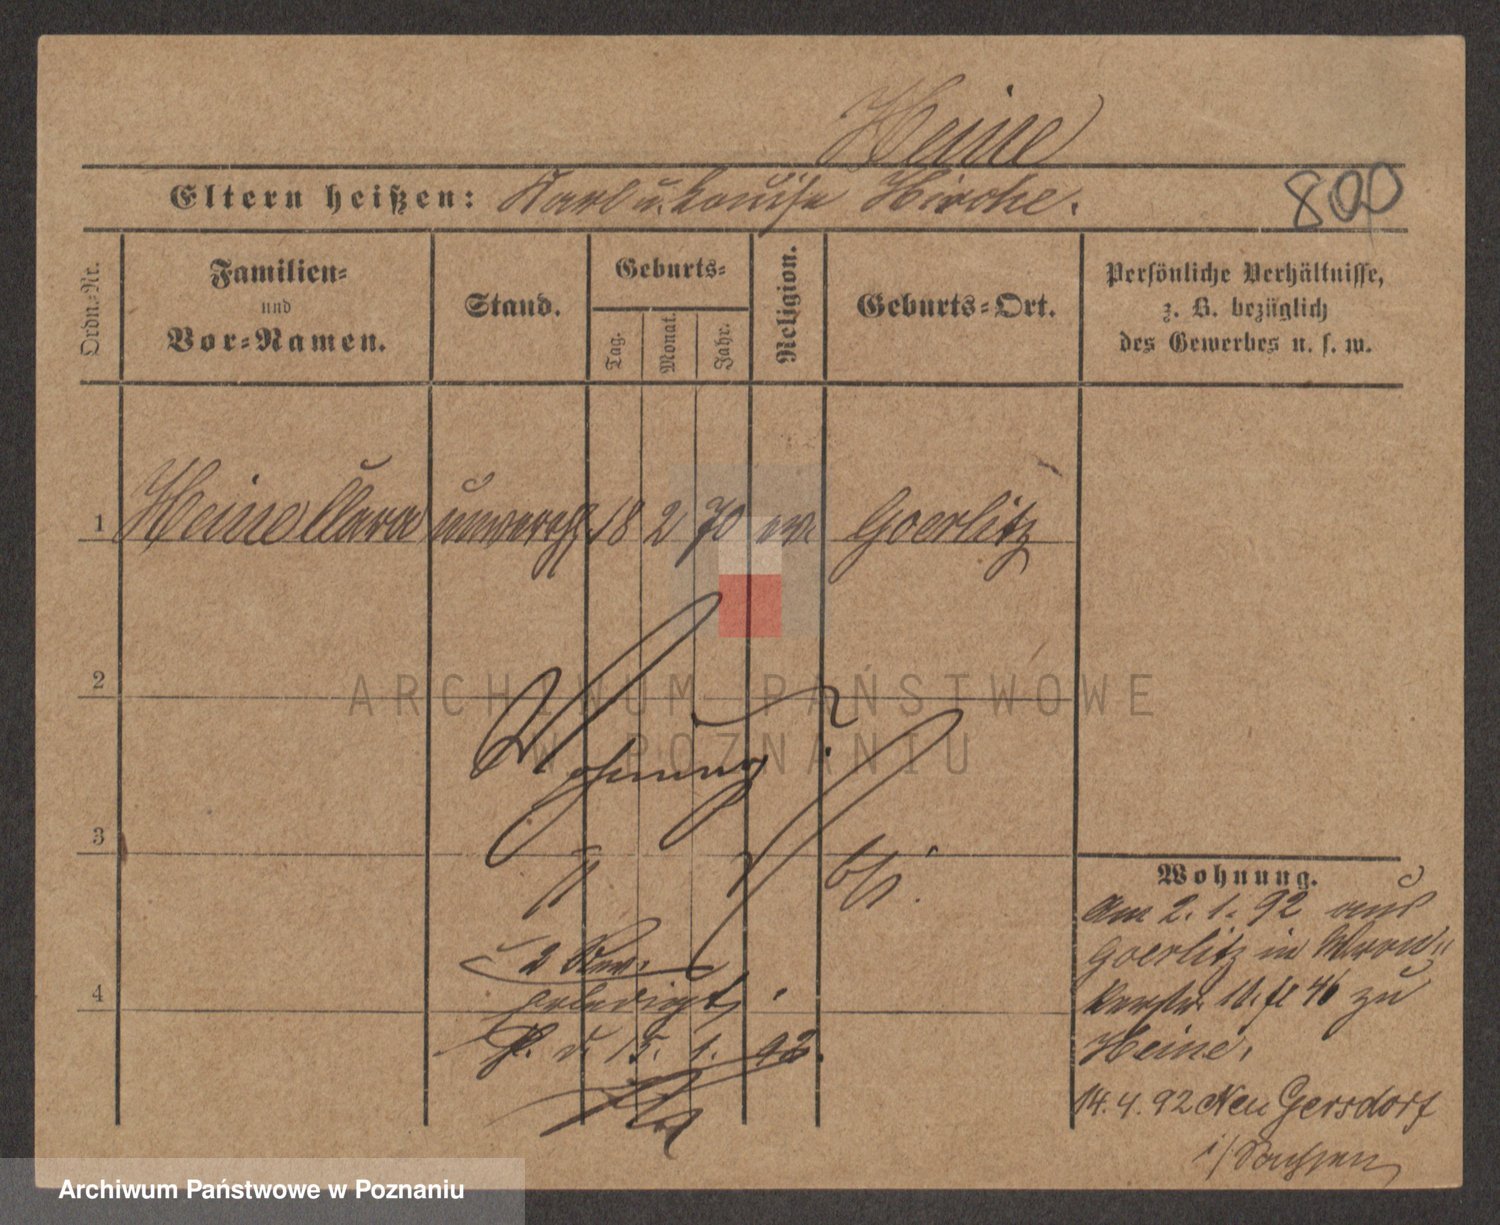 Heine
Eltern heißen: Karl u. Louise Hirche.
800
Ordn.-Nr.
Familien-
und
Vor-Namen.
Stand.
Geburts-
Tag.
Monat.
Jahr.
Religion.
Geburts-Ort.
Persönliche Verhältnisse,
z. B. bezüglich
des Gewerbes u. s. w.
1 Heine Clara unvereh. 18 2 70 ev. Goerlitz
2
Wohnung?
3
4
erledigt
d. 15. 1. 92.
Wohnung.
Am 2. 1. 92 aus
Goerlitz in Wron-
kerstr. 10. fl 46 zu
Heine.
14. 4. 92 Neu Gersdorf
i/Sachsen
ARCHIWUM PAŃSTWOWE
W POZNANIU
Archiwum Państwowe w Poznaniu